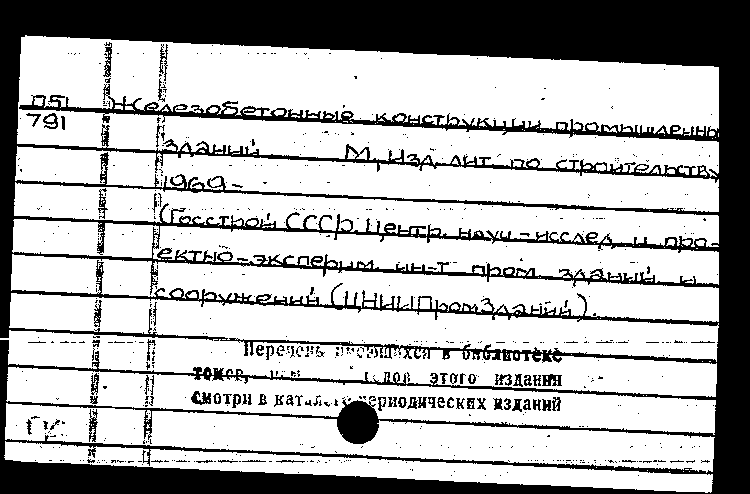 П51 Железобетонные конструкции промышленны
791
зданий М, Изд. лит. по строительству
1969-
(Госстрой СССР. Центр. науч-исслед. и про-
ектно-эксперим. ин-т пром. зданий и
сооружений (ЦНИИПромЗданий).
Перечень имеющихся в библиотеке
томов, этого издания
Смотри в каталоге периодических изданий
ГК